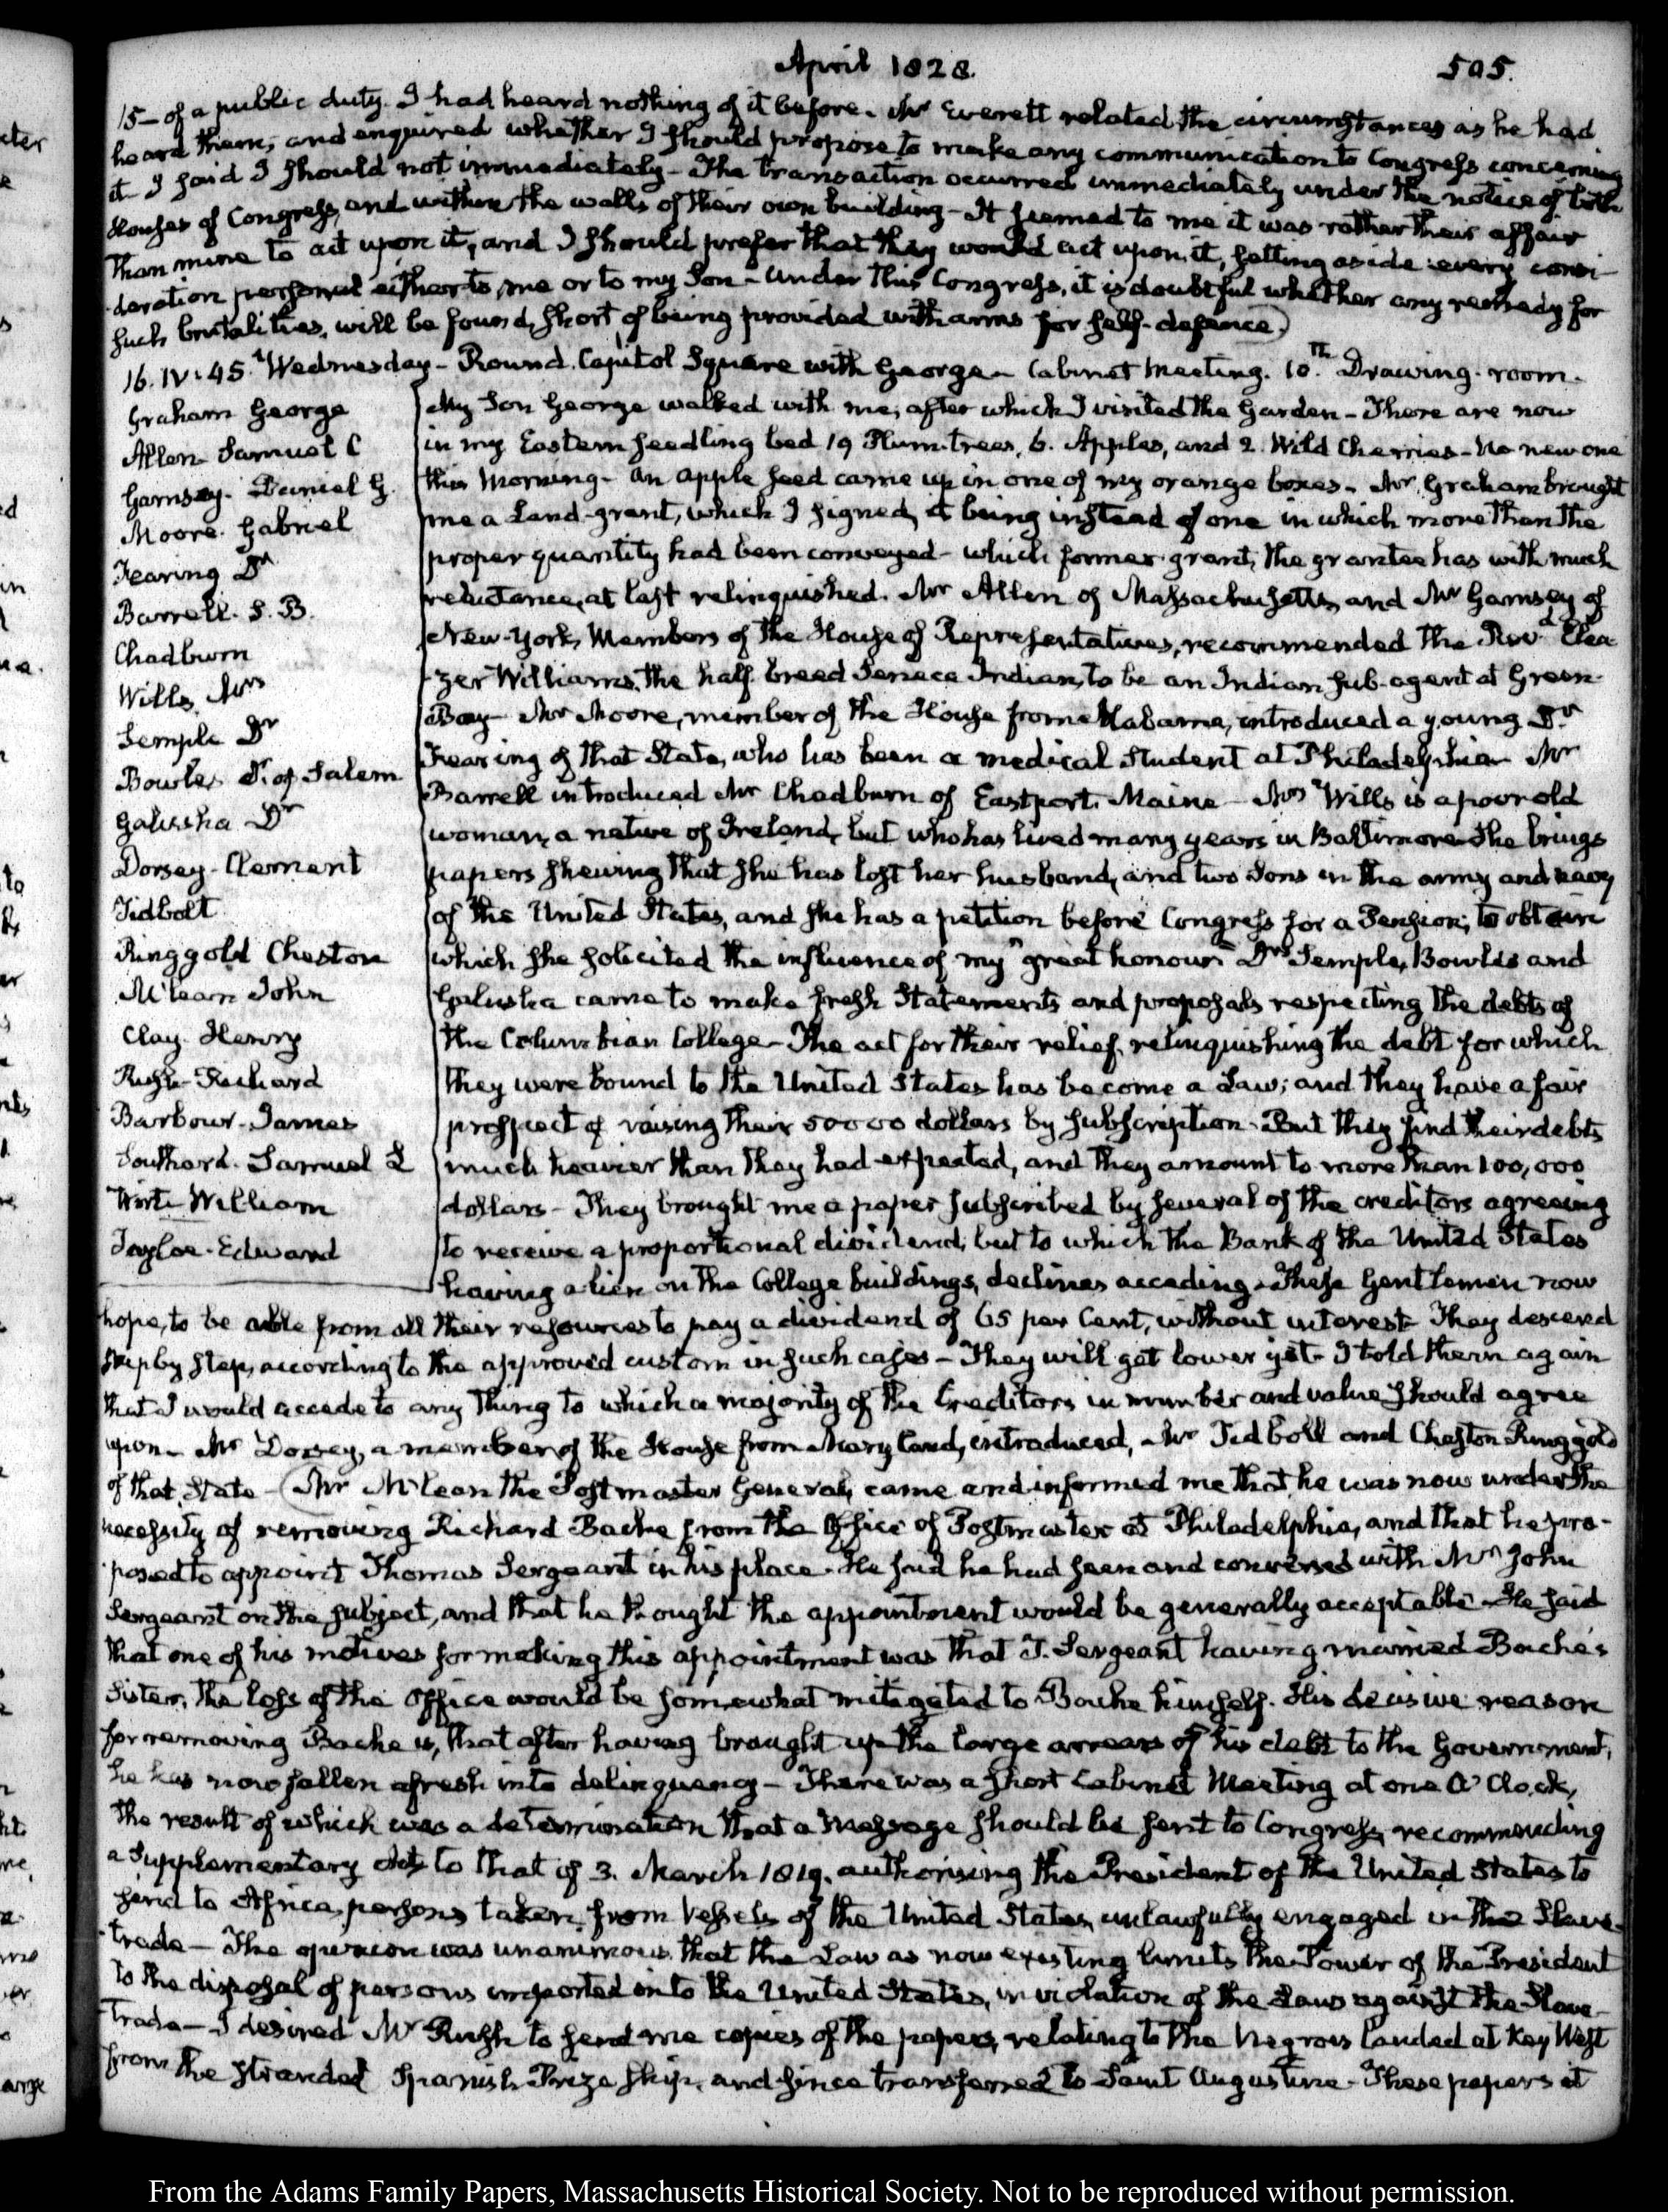 April 1828.
505.
15— of a public duty. I had heard nothing of it before. Mr Everett related the circumstances as he had
heard them, and enquired whether I should propose to make any communication to Congress concerning
it I said I should not immediately— The transaction occurred immediately under the notice of both
Houses of Congress, and within the walls of their own building— It seemed to me it was rather their affair
than mine to act upon it, and I should prefer that they would act upon it, setting aside every consi-
deration personal either to me or to my Son— Under this Congress, it is doubtful whether any remedy for
such brutalities, will be found, short of being provided with arms for self-defence.)
16. IV:45. Wednesday— Round Capitol Square with George— Cabinet Meeting. 10th Drawing-room.
Graham George
Allen Samuel C
Garnsey. Daniel G.
Moore. Gabriel
Fearing Dr
Barrell. S. B.
Chadburn
Wills, Mrs
Semple Dr
Bowles Dr. of Salem
Galusha Dr
Dorsey. Clement
Tidball
Ringgold Cheston
McLean John
Clay. Henry
Rush. Richard
Barbour. James
Southard. Samuel L
Wirt William
Tayloe. Edward
My Son George walked with me, after which I visited the Garden— There are now
in my Eastern seedling bed 19 Plum-trees, 6. Apples, and 2. Wild Cherries— No new one
this Morning— An apple seed came up in one of my orange boxes. Mr Graham brought
me a Land-grant, which I signed, it being instead of one in which more than the
proper quantity had been conveyed— which former grant, the grantee has with much
reluctance, at last relinquished. Mr Allen of Massachusetts, and Mr Garnsey of
New-York, Members of the House of Representatives, recommended the Revd Elea-
zer Williams, the half breed Seneca Indian, to be an Indian sub-agent at Green-
Bay— Mr Moore, member of the House from Alabama, introduced a young Dr
Fearing of that State, who has been a medical Student at Philadelphia— Mr
Barrell introduced Mr Chadburn of Eastport. Maine— Mrs Wills is a poor old
woman, a native of Ireland, but who has lived many years in Baltimore She brings
papers shewing that she has lost her husband, and two Sons in the army and navy
of the United States, and she has a petition before Congress for a Pension; to obtain
which she solicited the influence of my "great honour" Drs Semple, Bowles and
Galusha came to make fresh Statements and proposals respecting the debts of
the Columbian College— The act for their relief, relinquishing the debt for which
they were bound to the United States has become a Law; and they have a fair
prospect of raising their 50000 dollars by subscription. But they find their debts
much heavier than they had expected, and they amount to more than 100,000
dollars— They brought me a paper subscribed by several of the creditors agreeing
to receive a proportional dividend, but to which the Bank of the United States
having a lien on the College buildings, declines acceding. These Gentlemen now
hope, to be able from all their resources to pay a dividend of 65 per Cent, without interest They descend
step by step, according to the approved custom in such cases— They will get lower yet— I told them again
that I would accede to any thing to which a majority of the Creditors in number and value should agree
upon— Mr Dorsey, a member of the House from Maryland, introduced, Mr Tidball and Cheston Ringgold
of that State— (Mr McLean the Postmaster General, came and informed me that he was now under the
necessity of removing Richard Bache from the Office of Postmaster at Philadelphia, and that he pro-
posed to appoint Thomas Sergeant in his place. He said he had seen and conversed with Mr John
Sergeant on the subject, and that he thought the appointment would be generally acceptable— He said
that one of his motives for making this appointment was that T. Sergeant having married Bache's
Sister, the loss of the Office would be somewhat mitigated to Bache himself. His decisive reason
for removing Bache is, that after having brought up the large arrears of his debt to the Government,
he has now fallen afresh into delinquency— There was a short Cabinet Meeting at one O'Clock,
the result of which was a determination that a Message should be sent to Congress, recommending
a Supplementary Act to that of 3. March 1819. authorising the President of the United States to
send to Africa, persons taken from Vessels of the United States, unlawfully engaged in the Slave-
trade— The opinion was unanimous that the Law as now existing limits the Power of the President
to the disposal of persons imported into the United States, in violation of the Laws against the Slave-
Trade— I desired Mr Rush to send me copies of the papers relating to the Negroes landed at Key West
from the stranded Spanish Prize ship, and since transferred to Saint Augustine— These papers it
From the Adams Family Papers, Massachusetts Historical Society. Not to be reproduced without permission.